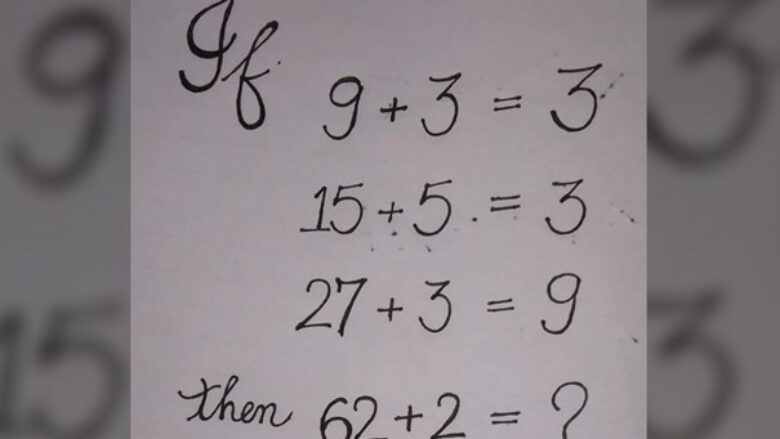 If
9 + 3 = 3
15 + 5 = 3
27 + 3 = 9
then 62 + 2 = ?